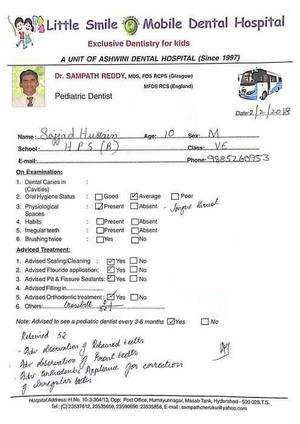 Little Smile Mobile Dental Hospital
Exclusive Dentistry for kids
A UNIT OF ASHWINI DENTAL HOSPITAL (Since 1997)
Dr. SAMPATH REDDY, MDS, FDS RCPS (Glasgow)
MFDS RCS (England)
Pediatric Dentist
Date: 2/2/2018
Name: Sajjad Hussain Age: 10 Sex: M
School: H P S (B) Class: VE
E-mail: Phone: 9885260953
On Examination:
1. Dental Caries in (Cavities) :
2. Oral Hygiene Status : Good Average Poor
3. Physiological Spaces : Present Absent - Tongue thrust
4. Habits : Present Absent
5. Irregular teeth : Present Absent
6. Brushing twice : Yes No
Adviced Treatment:
1. Advised Scaling/Cleaning : Yes No
2. Advised Flouride application: Yes No
3. Advised Pit & Fissure Sealants: Yes No
4. Advised Filling in
5. Advised Orthodontic treatment : Yes No
6. Others: Crossbite
Note: Advised to see a pediatric dentist every 3-6 months Yes No
Retained - 52
- Adv observation of Retained teeth
- Adv observation of Front teeth
- Adv Orthodontic Appliance for correction
of Irregular teeth
Hospital Address: H.No. 10-3-304/13, Opp: Post Office, Humayunnagar, Masab Tank, Hyderabad - 500 028.T.S.
Tel: (C) 23537612, 23535656, 23590690, 23535858, E-mail: sampathcheruku@yahoo.com